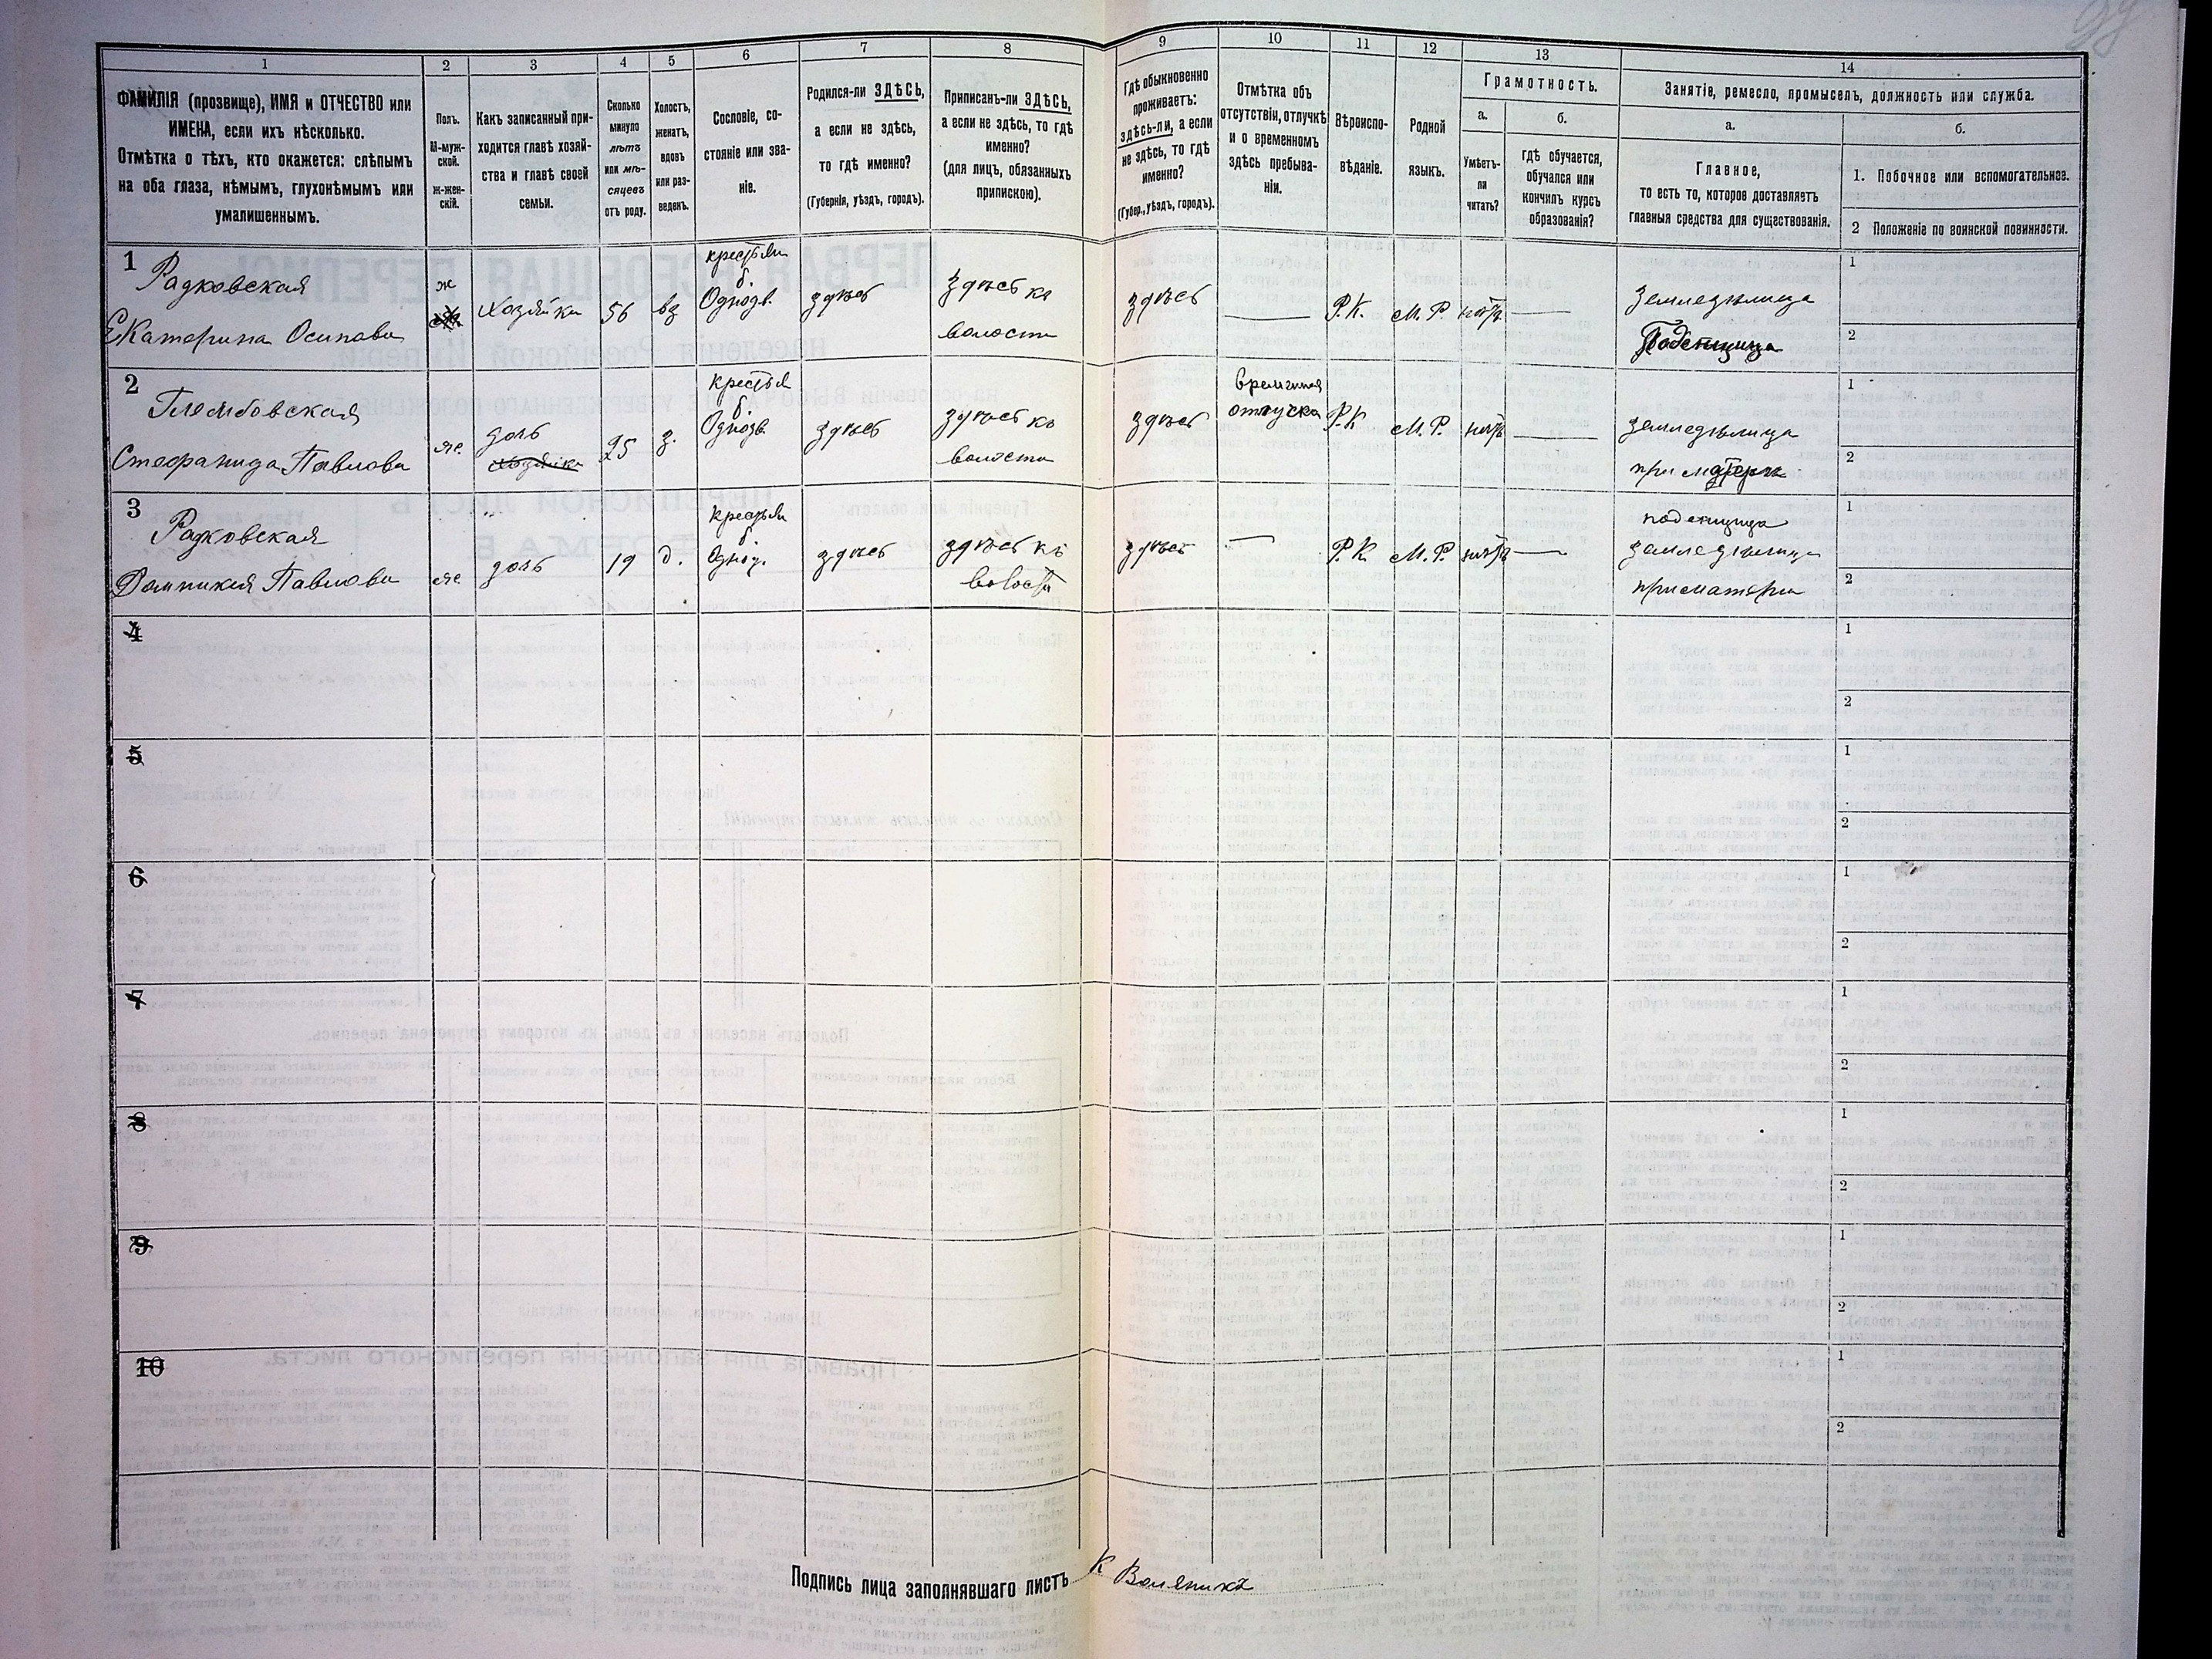 98
1
2
3
4
5
6
7
8
9
10
11
12
13
14
ФАМИЛІЯ (прозвище), ИМЯ и ОТЧЕСТВО или
ИМЕНА, если ихъ нѣсколько.
Отмѣтка о тѣхъ, кто окажется: слѣпымъ
на оба глаза, нѣмымъ, глухонѣмымъ или
умалишеннымъ.
Полъ.
М-муж-
ской.
ж-жен-
скій.
Какъ записанный при-
ходится главѣ хозяй-
ства и главѣ своей
семьи.
Сколько
минуло
лѣтъ
или мѣ-
сяцевъ
отъ роду.
Холостъ,
женатъ,
вдовъ
или раз-
веденъ.
Сословіе, со-
стояніе или зва-
ніе.
Родился-ли ЗДѢСЬ,
а если не здѣсь,
то гдѣ именно?
(Губернія, уѣздъ, городъ).
Приписанъ-ли ЗДѢСЬ,
а если не здѣсь, то гдѣ
именно?
(для лицъ, обязанныхъ
припискою).
Гдѣ обыкновенно
проживаетъ:
здѣсь-ли, а если
не здѣсь, то гдѣ
именно?
(Губер., уѣздъ, городъ).
Отмѣтка объ
отсутствіи, отлучкѣ
и о временномъ
здѣсь пребыва-
ніи.
Вѣроиспо-
вѣданіе.
Родной
языкъ.
Грамотность.
а.
Умѣетъ-
ли
читать?
б.
гдѣ обучается,
обучался или
кончилъ курсъ
образованія?
Занятіе, ремесло, промыселъ, должность или служба.
а.
Главное,
то есть то, которое доставляетъ
главныя средства для существованія.
б.
1. Побочное или вспомогательное.
2 Положеніе по воинской повинности.
1
Радковская
Екатерина Осипова
ж
Хозяйка
56
вд
крестьян
б.
Однодв.
здѣсь
здѣсь къ
волости
здѣсь
Р.К.
М.Р.
нѣтъ
земледѣлица
Поденщица
1
2
2
Глембовская
Стефанида Павлова
же
дочь
хозяйки
25
з.
крестья
б.
Однодв.
здѣсь
здѣсь къ
волости
здѣсь
временная
отлучка
Р.К
М.Р.
нѣтъ
земледѣлица
при матери
1
2
3
Радковская
Домникия Павлова
же
дочь
19
д.
крестьян
б.
Однод.
здѣсь
здѣсь къ
волости
здѣсь
Р.К.
М.Р.
нѣтъ
поденщица
земледѣлица
при матери
1
2
4
1
2
5
1
2
6
1
2
7
1
2
8
1
2
9
1
2
10
1
2
Подпись лица заполнявшаго листъ К